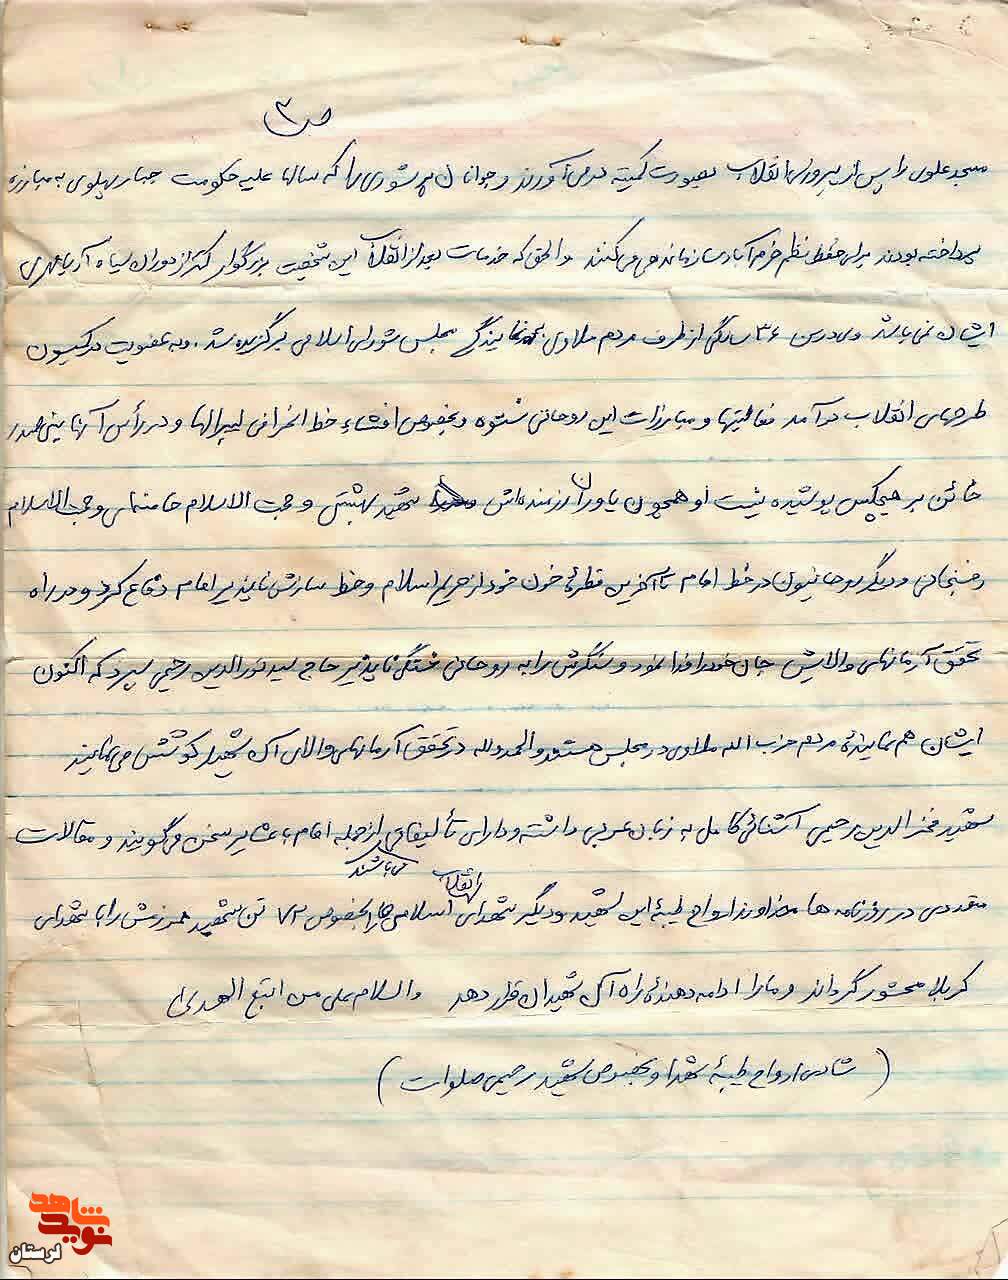 ص ۳
مسجد علوی را پس از پیروزی انقلاب بصورت کمیته در می آورند و جوانان پر شوری را که سالها علیه حکومت جبار پهلوی به مبارزه
پرداخته بودند برای حفظ نظم خرم آباد سازماندهی می کنند و الحق که خدمات بعد از انقلاب این شخصیت بزرگوار کمتر از دوران سیاه آریامهری
ایشان نمی باشد وی در سن ۳۶ سالگی از طرف مردم ملاوی به نمایندگی مجلس شورای اسلامی برگزیده شد . و به عضویت در کمیسیون
طرحهای انقلاب در آمد فعالیتها و مبارزات این روحانی نستوه و بخصوص افشاء خط انحرافی لیبرالها و در رأس آنها بنی صدر
خائن بر هیچکس پوشیده نیست او همچون یاوران رزمنده اش شهید بهشتی و حجت الاسلام خامنه ای و حجت الاسلام
رفسنجانی و دیگر روحانیون در خط امام تا آخرین قطرهٔ خون خود از حریم اسلام و خط سازش ناپذیر امام دفاع کرد و در راه
تحقق آرمانهای والایش جان خود را فدا نمود و سنگرش را به روحانی خستگی ناپذیر حاج سید نورالدین رحیمی سپرد که اکنون
ایشان هم نمایندهٔ مردم حزب الله ملاوی در مجلس هستند و الحمدولله در تحقق آرمانهای والای آن شهید کوشش می نمایند
شهید فخرالدین رحیمی آشنائی کامل به زبان عربی داشته و دارای تألیفاتی از جمله امام با عشایر سخن می گویند و مقالات
متعددی در روزنامه ها می باشند خداوند ارواح طیبهٔ این شهید و دیگر شهدای انقلاب اسلامی ما بخصوص ۷۲ تن شهید همرزمش را با شهدای
کربلا محشور گرداند و ما را ادامه دهندهٔ راه آن شهیدان قرار دهد والسلام علی من اتبع الهدی
( شادی ارواح طیبهٔ شهدا و بخصوص شهید رحیمی صلوات )
نوید شاهد
لرستان